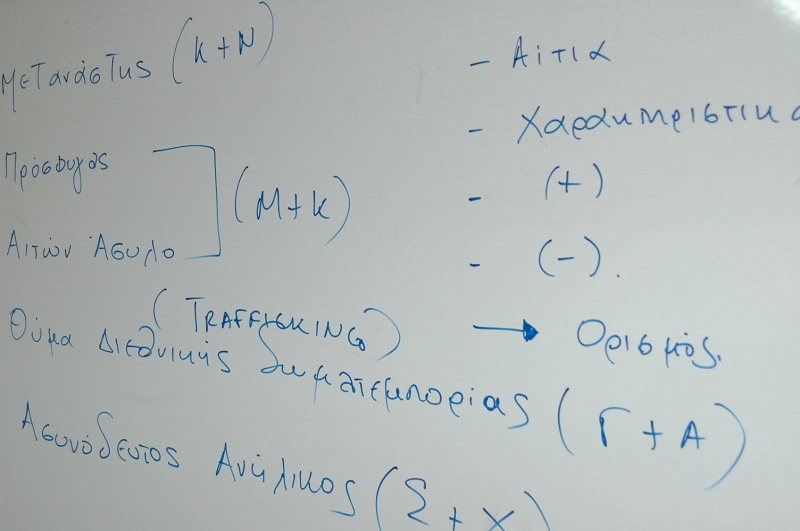 Μετανάστης (Κ+Ν)
Πρόσφυγας
Αιτών Άσυλο
(Μ+Κ)
(TRAFFISKING)
Θύμα Διεθνικής Σωματεμπορίας (Γ+Α)
Ασυνόδευτος Ανήλικος (Σ+Χ)
- Αίτια
- Χαρακτηριστικα
- (+)
- (-).
→ Ορισμός.